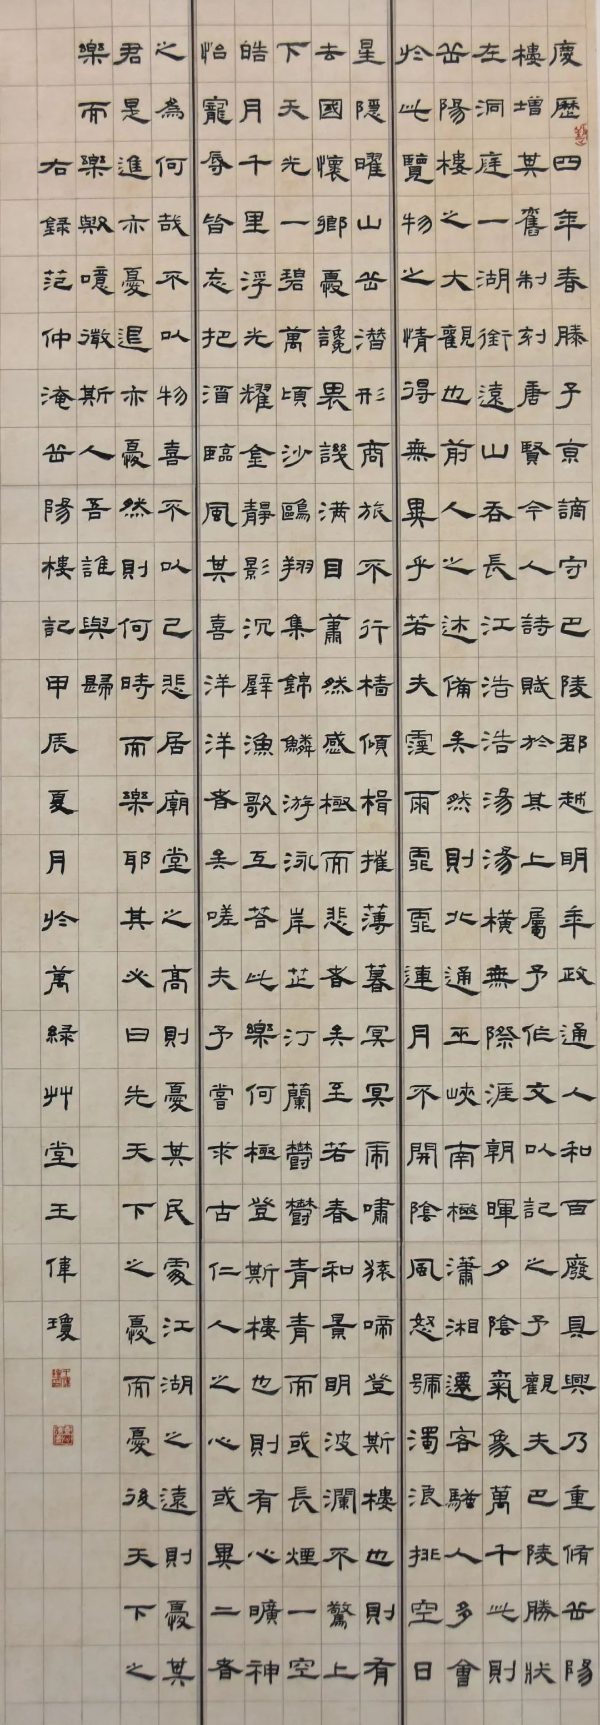 慶歷四年春滕子京謫守巴陵郡越明年政通人和百廢具興乃重脩岳陽
樓增其舊制刻唐賢今人詩賦於其上屬予作文以記之予觀夫巴陵勝狀
在洞庭一湖銜遠山吞長江浩浩湯湯橫無際涯朝暉夕陰氣象萬千此則
岳陽樓之大觀也前人之述備矣然則北通巫峽南極瀟湘遷客騷人多會
於此覽物之情得無異乎若夫霪雨霏霏連月不開陰風怒號濁浪排空日
星隱曜山岳潛形商旅不行檣傾楫摧薄暮冥冥虎嘯猿啼登斯樓也則有
去國懷鄉憂讒畏譏滿目蕭然感極而悲者矣至若春和景明波瀾不驚上
下天光一碧萬頃沙鷗翔集錦鱗游泳岸芷汀蘭鬱鬱青青而或長煙一空
皓月千里浮光耀金靜影沉璧漁歌互答此樂何極登斯樓也則有心曠神
怡寵辱皆忘把酒臨風其喜洋洋者矣嗟夫予嘗求古仁人之心或異二者
之為何哉不以物喜不以己悲居廟堂之高則憂其民處江湖之遠則憂其
君是進亦憂退亦憂然則何時而樂耶其必曰先天下之憂而憂後天下之
樂而樂歟噫微斯人吾誰與歸
右錄范仲淹岳陽樓記甲辰夏月於萬綠艸堂王偉瓊